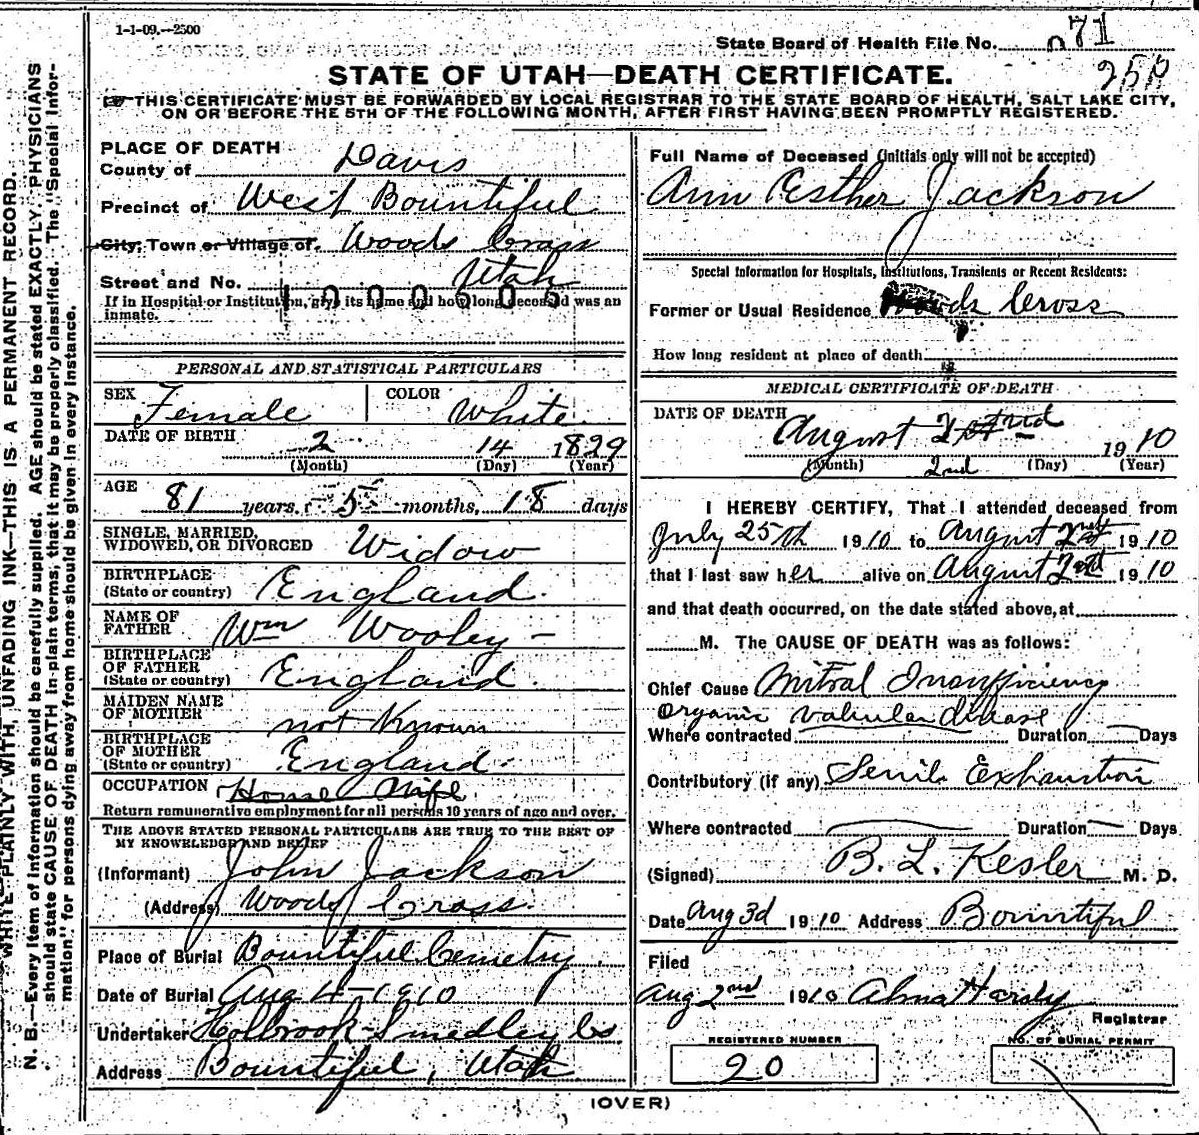 1-1-09.—2500
State Board of Health File No. 71
STATE OF UTAH—DEATH CERTIFICATE.
THIS CERTIFICATE MUST BE FORWARDED BY LOCAL REGISTRAR TO THE STATE BOARD OF HEALTH, SALT LAKE CITY,
ON OR BEFORE THE 5TH OF THE FOLLOWING MONTH, AFTER FIRST HAVING BEEN PROMPTLY REGISTERED.
WRITE PLAINLY WITH, UNFADING INK—THIS IS A PERMANENT RECORD.
N. B.—Every item of information should be carefully supplied. AGE should be stated EXACTLY. PHYSICIANS
should state CAUSE OF DEATH in plain terms, that it may be properly classified. The "Special Infor-
mation" for persons dying away from home should be given in every instance.
PLACE OF DEATH
County of Davis
Precinct of West Bountiful
City; Town or Village of. Woods Cross
Street and No. Utah
If in Hospital or Institution, give its name and how long deceased was an
inmate.
PERSONAL AND STATISTICAL PARTICULARS
SEX Female COLOR White
DATE OF BIRTH 2 14 1829
(Month) (Day) (Year)
AGE 81 years, 5 months, 18 days
SINGLE, MARRIED,
WIDOWED, OR DIVORCED Widow
BIRTHPLACE
(State or country) England.
NAME OF
FATHER Wm Wooley
BIRTHPLACE
OF FATHER
(State or country) England.
MAIDEN NAME
OF MOTHER not Known
BIRTHPLACE
OF MOTHER
(State or country) England.
OCCUPATION House Wife
Return remunerative employment for all persons 10 years of age and over.
THE ABOVE STATED PERSONAL PARTICULARS ARE TRUE TO THE BEST OF
MY KNOWLEDGE AND BELIEF
(Informant) John Jackson
(Address) Woods Cross.
Place of Burial Bountiful Cemetry.
Date of Burial Aug 4-1910
Undertaker Holbrook-Smedley Co
Address Bountiful, Utah
Full Name of Deceased (Initials only will not be accepted)
Ann Esther Jackson
Special Information for Hospitals, Institutions, Transients or Recent Residents:
Former or Usual Residence Woods Cross
How long resident at place of death
MEDICAL CERTIFICATE OF DEATH
DATE OF DEATH
August 2nd 1910
(Month) 2nd (Day) (Year)
I HEREBY CERTIFY, That I attended deceased from
July 25th 1910 to August 2nd 1910
that I last saw her alive on August 2nd 1910
and that death occurred, on the date stated above, at
M. The CAUSE OF DEATH was as follows:
Chief Cause Mitral Insufficiency
Organic valvular disease
Where contracted Duration Days
Contributory (if any) Senile Exhaustion
Where contracted Duration Days
(Signed) B. L. Kesler M. D.
Date Aug 3d 1910 Address Bountiful
Filed
Aug 2nd 1910 Alma Hardy
Registrar
REGISTERED NUMBER
20
NO. OF BURIAL PERMIT
(OVER)